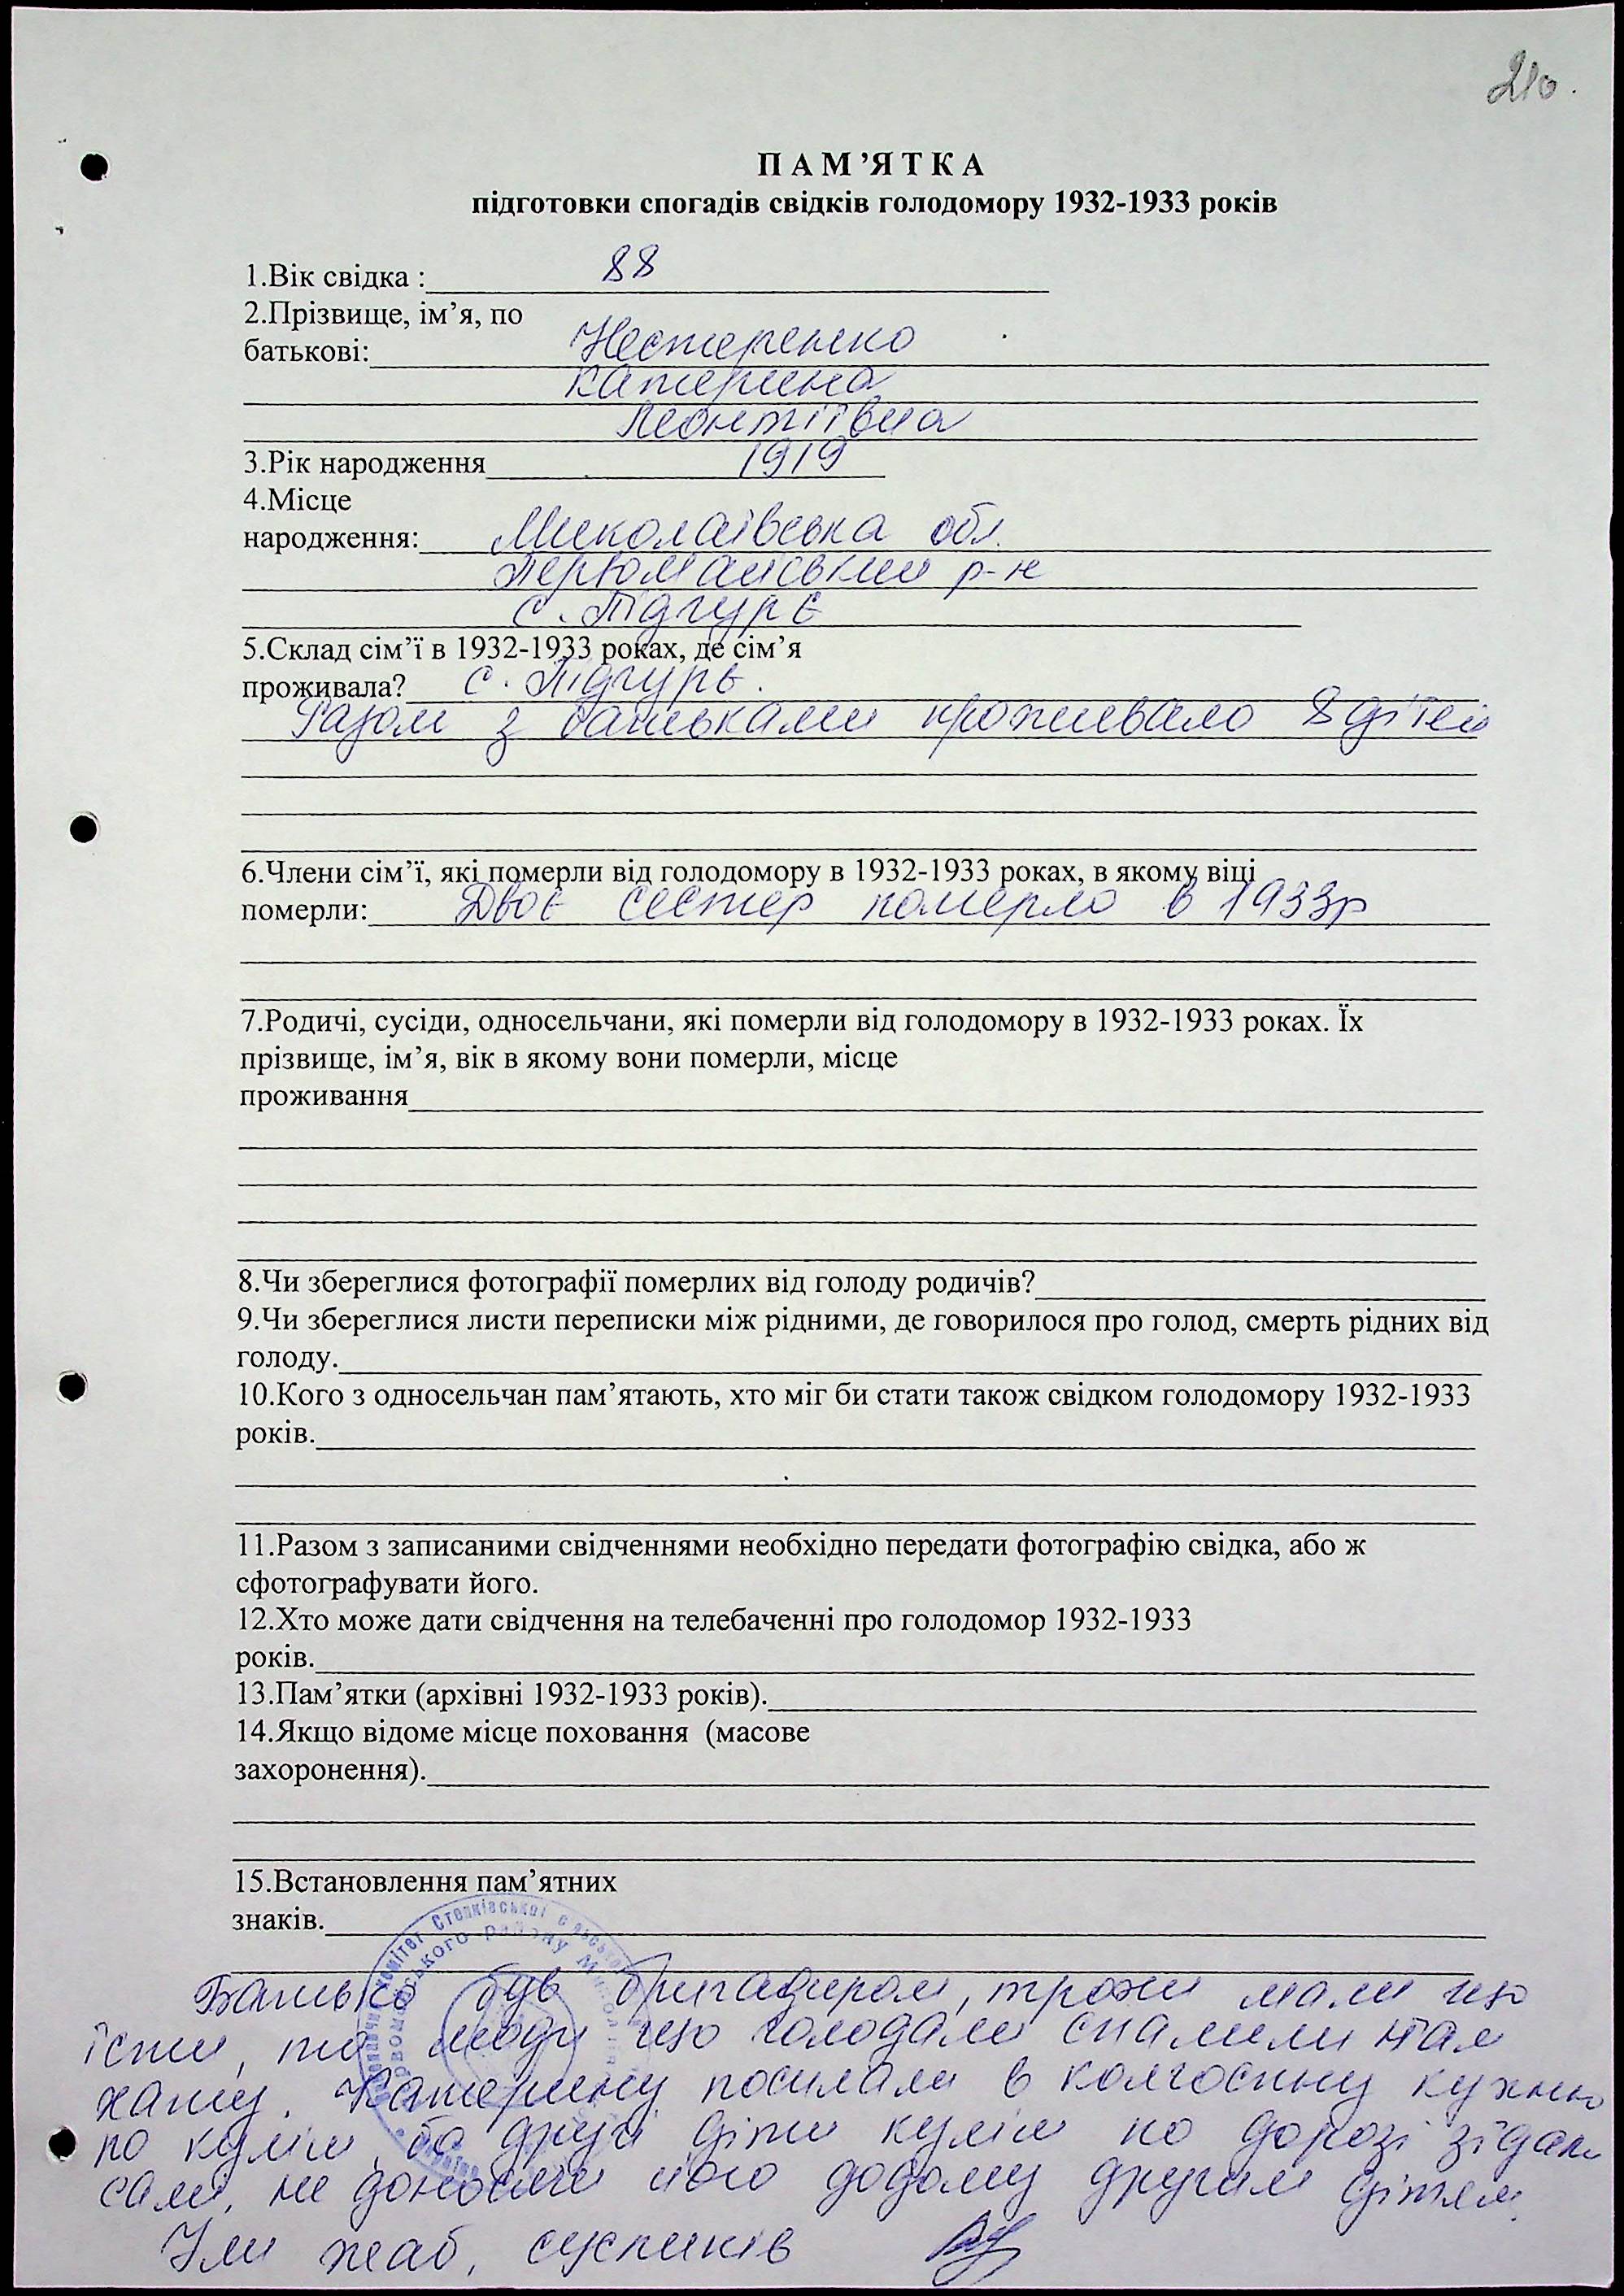 210.
ПАМ’ЯТКА
підготовки спогадів свідків голодомору 1932-1933 років
1.Вік свідка : 88
2.Прізвище, ім’я, по
батькові: Нестеренко
Катерина
Леонтіївна
3.Рік народження 1919
4.Місце
народження: Миколаївська обл.
Первомайський р-н
с. Підгур'є
5.Склад сім’ї в 1932-1933 роках, де сім’я
проживала? с. Підгур'є.
Разом з батьками проживало 8 дітей
6.Члени сім’ї, які померли від голодомору в 1932-1933 роках, в якому віці
померли: Двоє сестер померло в 1933р
7.Родичі, сусіди, односельчани, які померли від голодомору в 1932-1933 роках. Їх
прізвище, ім’я, вік в якому вони померли, місце
проживання
8.Чи збереглися фотографії померлих від голоду родичів?
9.Чи збереглися листи переписки між рідними, де говорилося про голод, смерть рідних від
голоду.
10.Кого з односельчан пам’ятають, хто міг би стати також свідком голодомору 1932-1933
років.
11.Разом з записаними свідченнями необхідно передати фотографію свідка, або ж
сфотографувати його.
12.Хто може дати свідчення на телебаченні про голодомор 1932-1933
років.
13.Пам’ятки (архівні 1932-1933 років).
14.Якщо відоме місце поховання (масове
захоронення).
15.Встановлення пам’ятних
знаків.
комітет Степківської
району
Батько був бригадиром, трохи мали що
їсти, то люди що голодали спалили нам
хату. Катерину посилали в колгоспну кухню
по куліш, бо другі діти куліш по дорозі з'їдали
самі, не доносили його додому другим дітям.
Їли жаб, сусликів